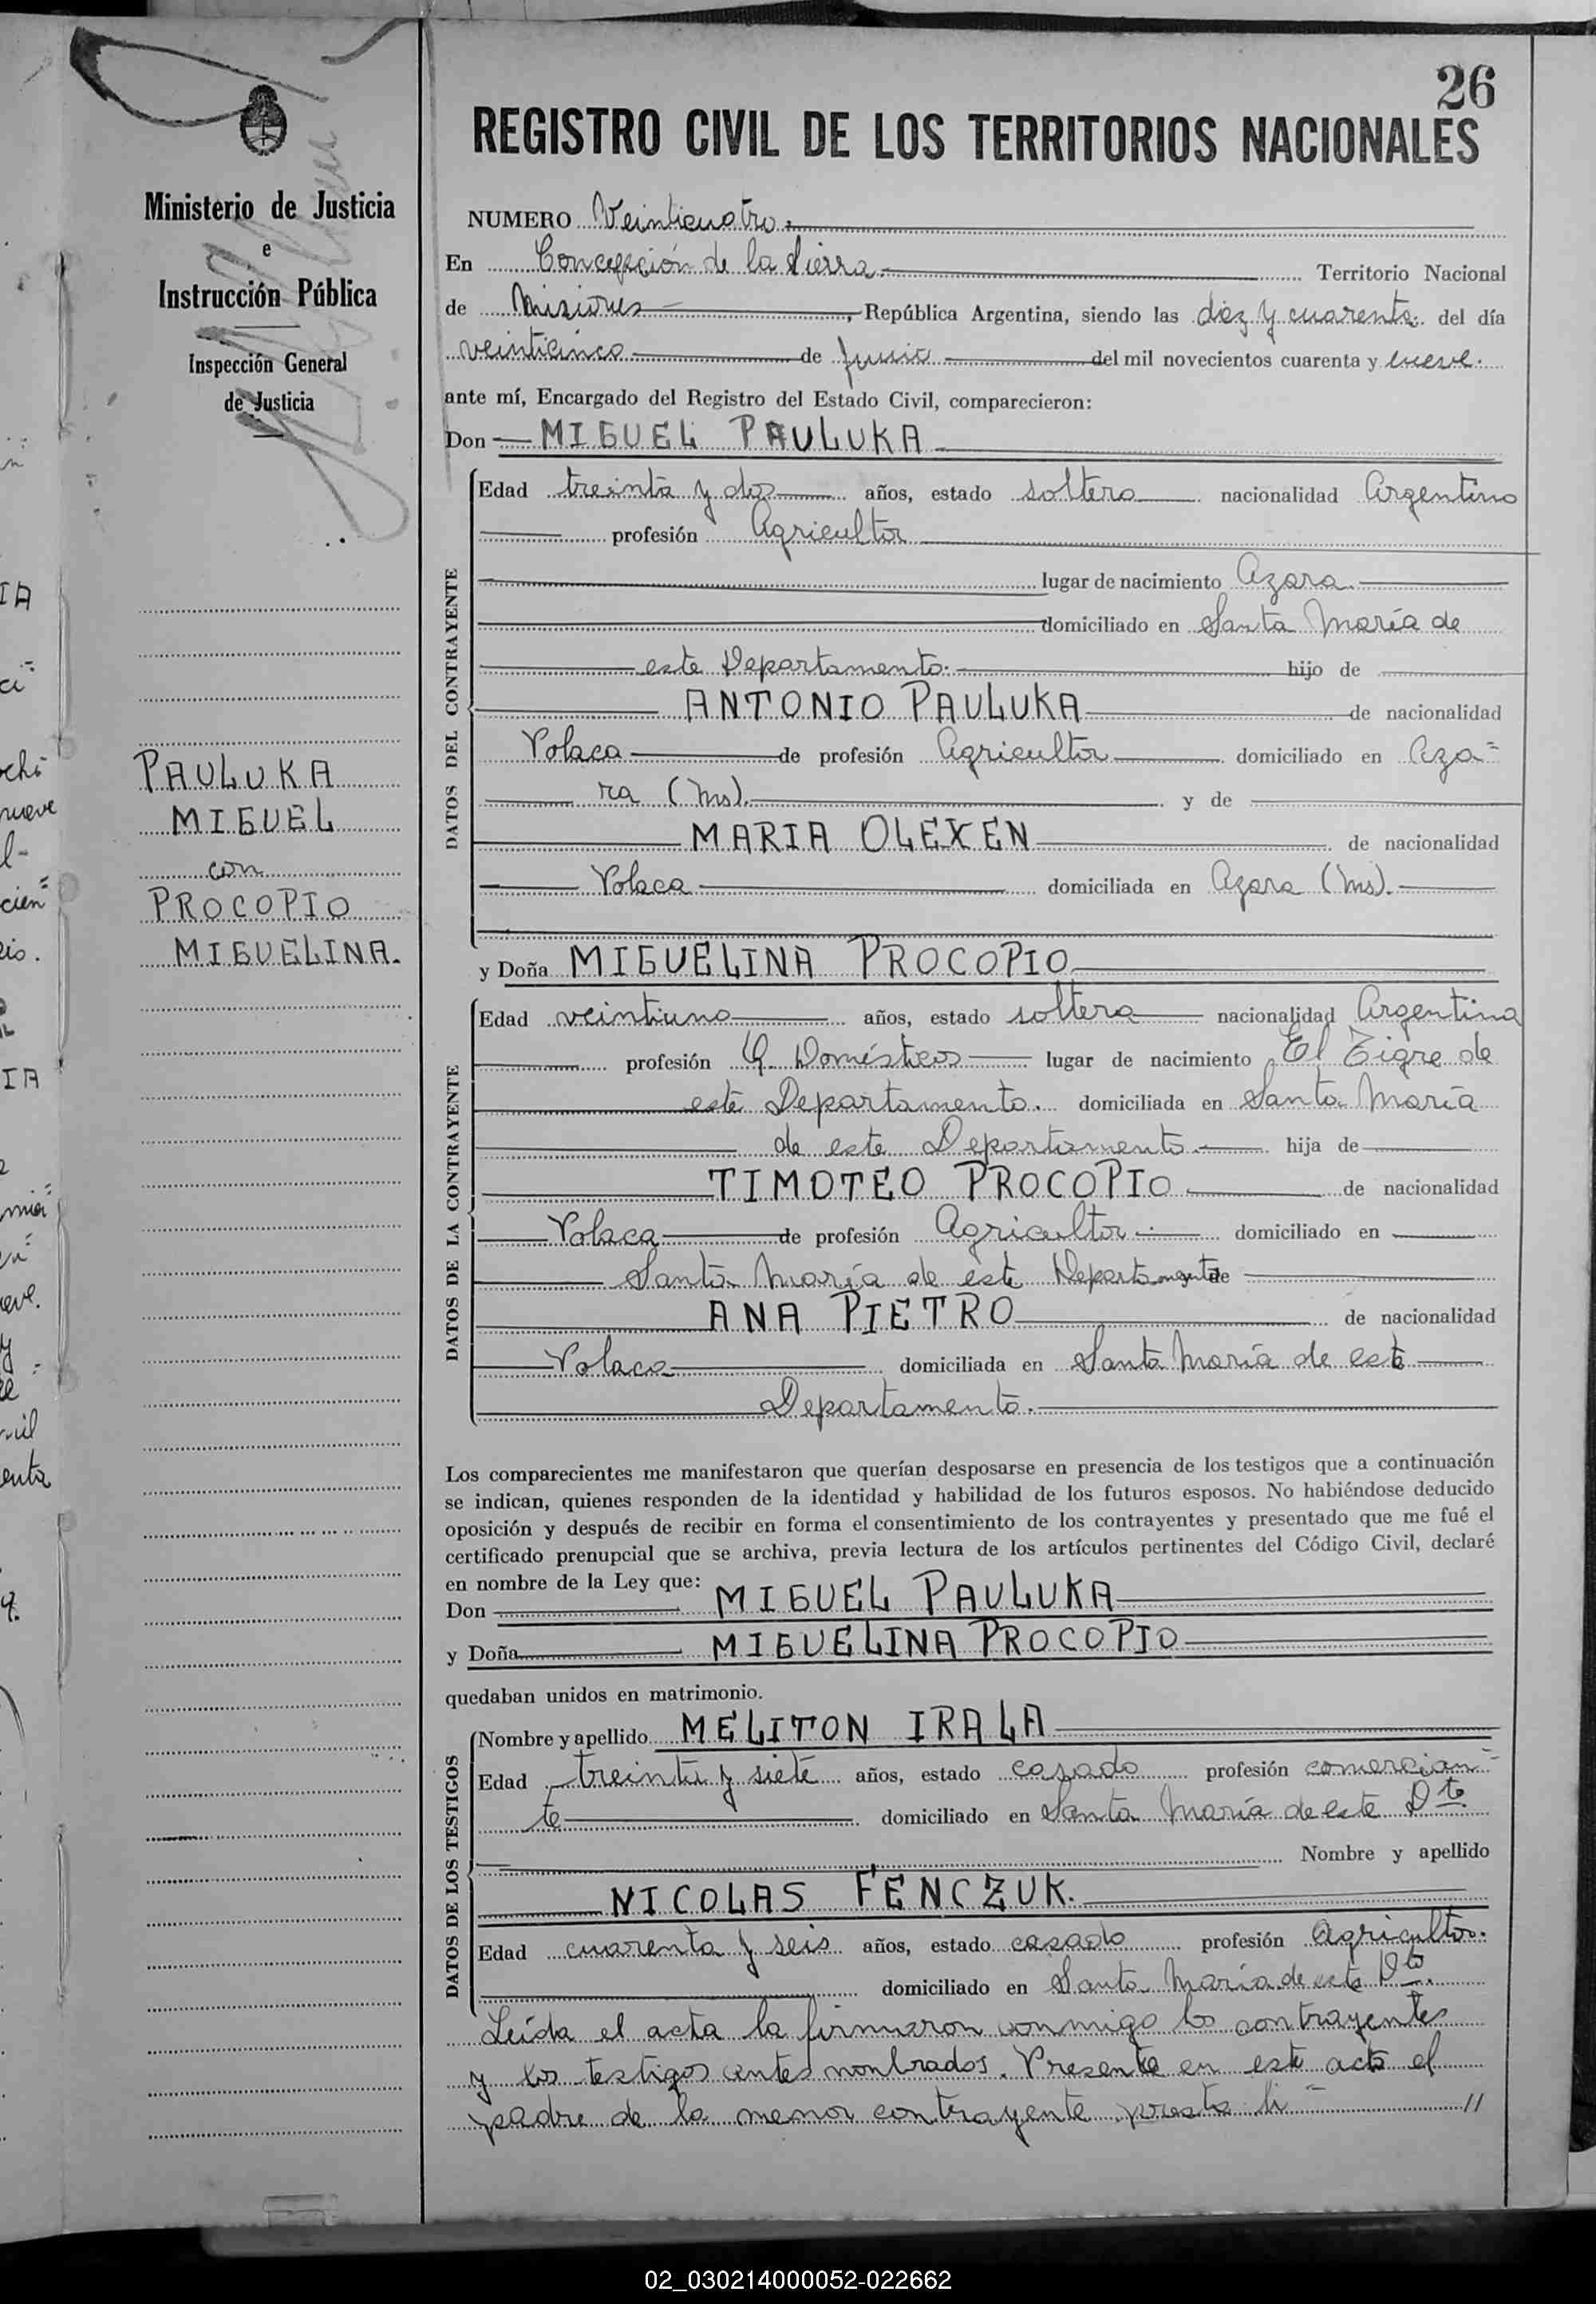 26
REGISTRO CIVIL DE LOS TERRITORIOS NACIONALES
Ministerio de Justicia
e
Instrucción Pública
Inspección General
de Justicia
PAULUKA
MIGUEL
con
PROCOPIO
MIGUELINA.
NUMERO Veinticuatro.
En Concepción de la Sierra Territorio Nacional
de Misiones, República Argentina, siendo las diez y cuarenta. del día
veinticinco de Junio del mil novecientos cuarenta y nueve.
ante mí, Encargado del Registro del Estado Civil, comparecieron:
Don MIGUEL PAULUKA
DATOS DEL CONTRAYENTE
Edad treinta y dos años, estado soltero nacionalidad Argentino
profesión Agricultor
lugar de nacimiento Azara.
domiciliado en Santa María de
este Departamento. hijo de
ANTONIO PAULUKA de nacionalidad
Polaca de profesión Agricultor domiciliado en Aza=
ra (Ms). y de
MARIA OLEXEN de nacionalidad
Polaca domiciliada en Azara (Ms).
y Doña MIGUELINA PROCOPIO
DATOS DE LA CONTRAYENTE
Edad veintiuno años, estado soltera nacionalidad Argentina
profesión Q. Domésticos lugar de nacimiento El Tigre de
este Departamento. domiciliada en Santa María
de este Departamento hija de
TIMOTEO PROCOPIO de nacionalidad
Polaca de profesión Agricultor domiciliado en
Santa María de este Departamento y de
ANA PIETRO de nacionalidad
Polaca domiciliada en Santa María de este
Departamento.
Los comparecientes me manifestaron que querían desposarse en presencia de los testigos que a continuación
se indican, quienes responden de la identidad y habilidad de los futuros esposos. No habiéndose deducido
oposición y después de recibir en forma el consentimiento de los contrayentes y presentado que me fué el
certificado prenupcial que se archiva, previa lectura de los artículos pertinentes del Código Civil, declaré
en nombre de la Ley que:
Don MIGUEL PAULUKA
y Doña MIGUELINA PROCOPIO
quedaban unidos en matrimonio.
DATOS DE LOS TESTIGOS
Nombre y apellido MELITON IRALA
Edad treinta y siete años, estado casado profesión comercian=
te domiciliado en Santa María de este Dto
Nombre y apellido
NICOLAS FENCZUK.
Edad cuarenta y seis años, estado casado profesión Agricultor.
domiciliado en Santa María de este Dto.
Leída el acta la firmaron conmigo los contrayentes
y los testigos antes nonbrados. Presente en este acto el
padre de la menor contrayente presta li= //
02_030214000052-022662